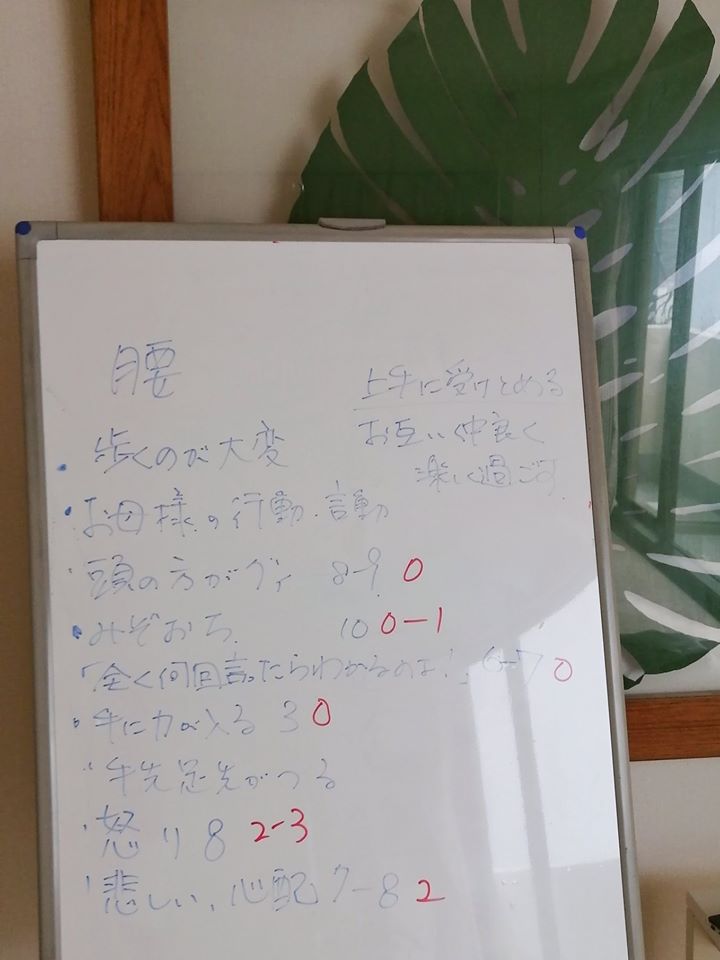 腰
上手に受けとめる
お互い仲良く
楽しく過ごす
・歩くのが大変
・お母様の行動・言動
・頭の方がグィ 8-9 0
・みぞおち 10 0-1
「全く何回言ったらわかるのよ!」 6-7 0
・手に力が入る 3 0
・手先足先がつる
・怒り 8 2-3
・悲しい、心配 7-8 2